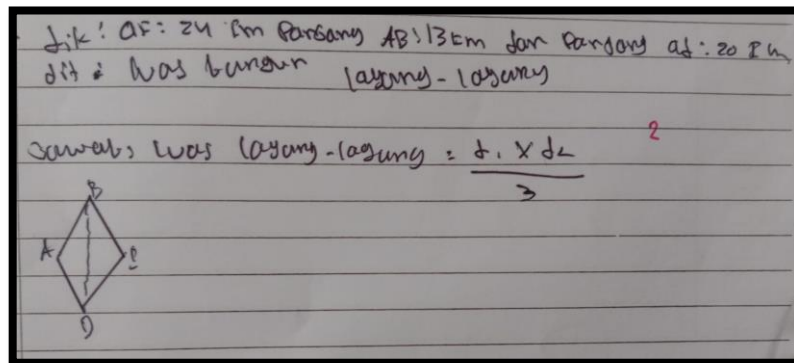 dik : ac : 24 cm Panjang AB : 13 cm dan Panjang ad : 20 cm
dit : luas bangun layang-layang
2
Jawab, luas layang-layang = d1 x d2
3
B
A
D